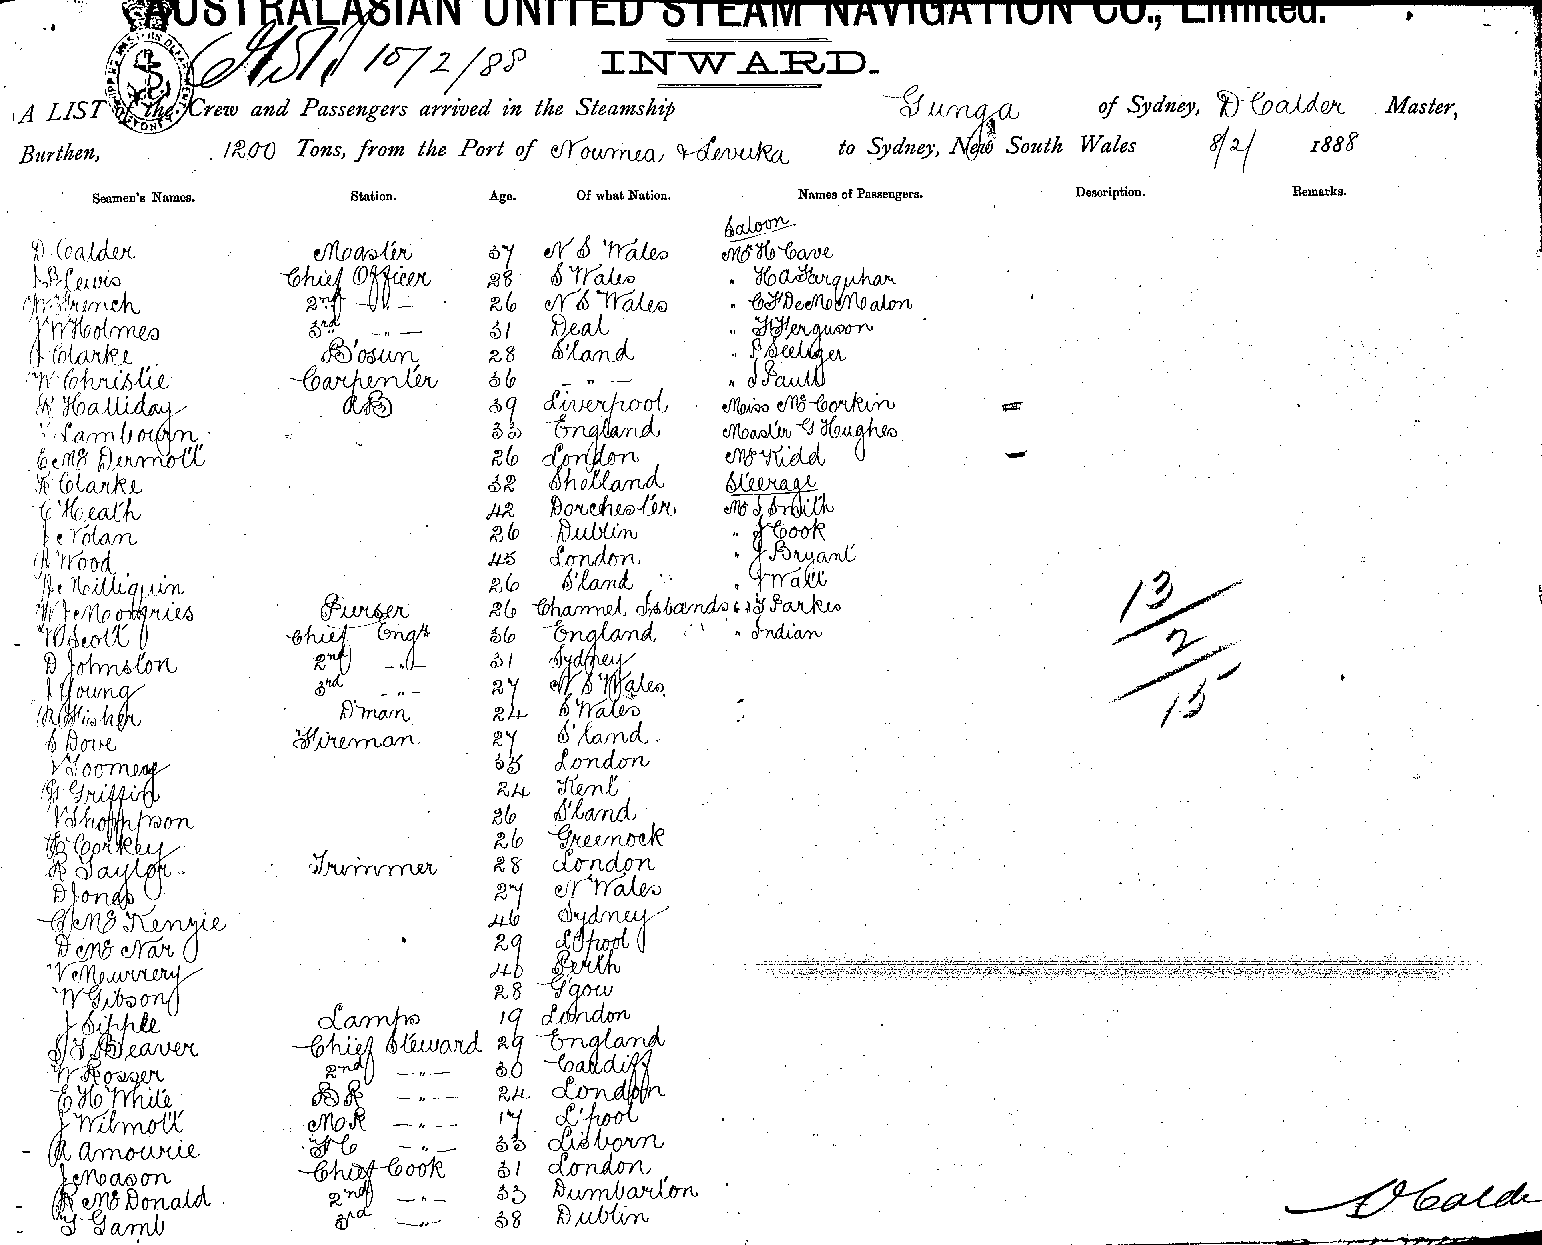 AUSTRALASIAN UNITED STEAM NAVIGATION CO., Limited.
10/2/88 INWARD.
A LIST of the Crew and Passengers arrived in the Steamship Gunga of Sydney, D Calder Master,
Burthen, 1200 Tons, from the Port of Noumea & Levuka to Sydney, New South Wales 8/2/ 1888
Seamen's Names. Station. Age. Of what Nation. Names of Passengers. Description. Remarks.
Saloon
D Calder Master 37 N S Wales Mr H Cave
J B Lewis Chief Officer 28 S Wales " H A Farquhar
W French 2nd -"- 26 N S Wales " C F De M Malon
J W Holmes 3rd -"- 31 Deal " F Ferguson
J Clarke B'osun 28 S'land " P Seeliger
W Christie Carpenter 36 -"- " J Paull
R Halliday AB 39 Liverpool Miss McCorkin
Lambourn 33 England Master G Hughes
C McDermott 26 London Mr Kidd
R Clarke 32 Shetland Steerage
C Heath 42 Dorchester Mr J Smith
J Nolan 26 Dublin " J Cook
A Wood 45 London " J Bryant
Milliquin 26 S'land " J Wall
Purser 26 Channel Islands " J Parkes
W Scott Chief Engr 36 England " Indian
D Johnston 2nd -"- 31 Sydney
J Young 3rd -"- 27 N S Wales
A Fisher D'man 24 S Wales
S Dove Fireman 27 S'land
V Toomey 35 London
H Griffin 24 Kent
V Thompson 26 S'land
H Corkey 26 Greenock
R Taylor Trimmer 28 London
D Jones 27 N Wales
C McKenzie 46 Sydney
D McNar 29 L'pool
V Mewrrery 46 Perth
W Gibson 28 G'gow
J Sipple Lamps 19 London
S T Beaver Chief Steward 29 England
W Rosser 2nd -"- 30 Cardiff
E H White BR -"- 24 London
J Wilmott MR -"- 17 L'pool
A Amourie FC -"- 33 Lisborn
J Mason Chief Cook 31 London
R McDonald 2nd -"- 33 Dumbarton
T Gamb 3rd -"- 38 Dublin
13
2
15
D Calde